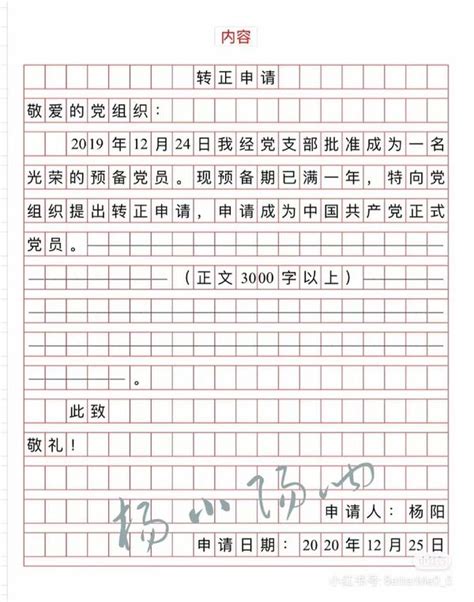 内容
转正申请
敬爱的党组织：
2019年12月24日我经党支部批准成为一名
光荣的预备党员。现预备期已满一年，特向党
组织提出转正申请，申请成为中国共产党正式
党员。
（正文3000字以上）
。
此致
敬礼！
杨小阳
申请人：杨阳
申请日期：2020年12月25日